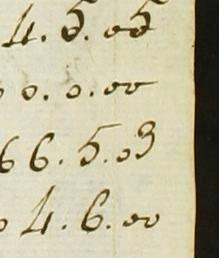 4.5.05
0.0.00
66.5.03
04.6.00